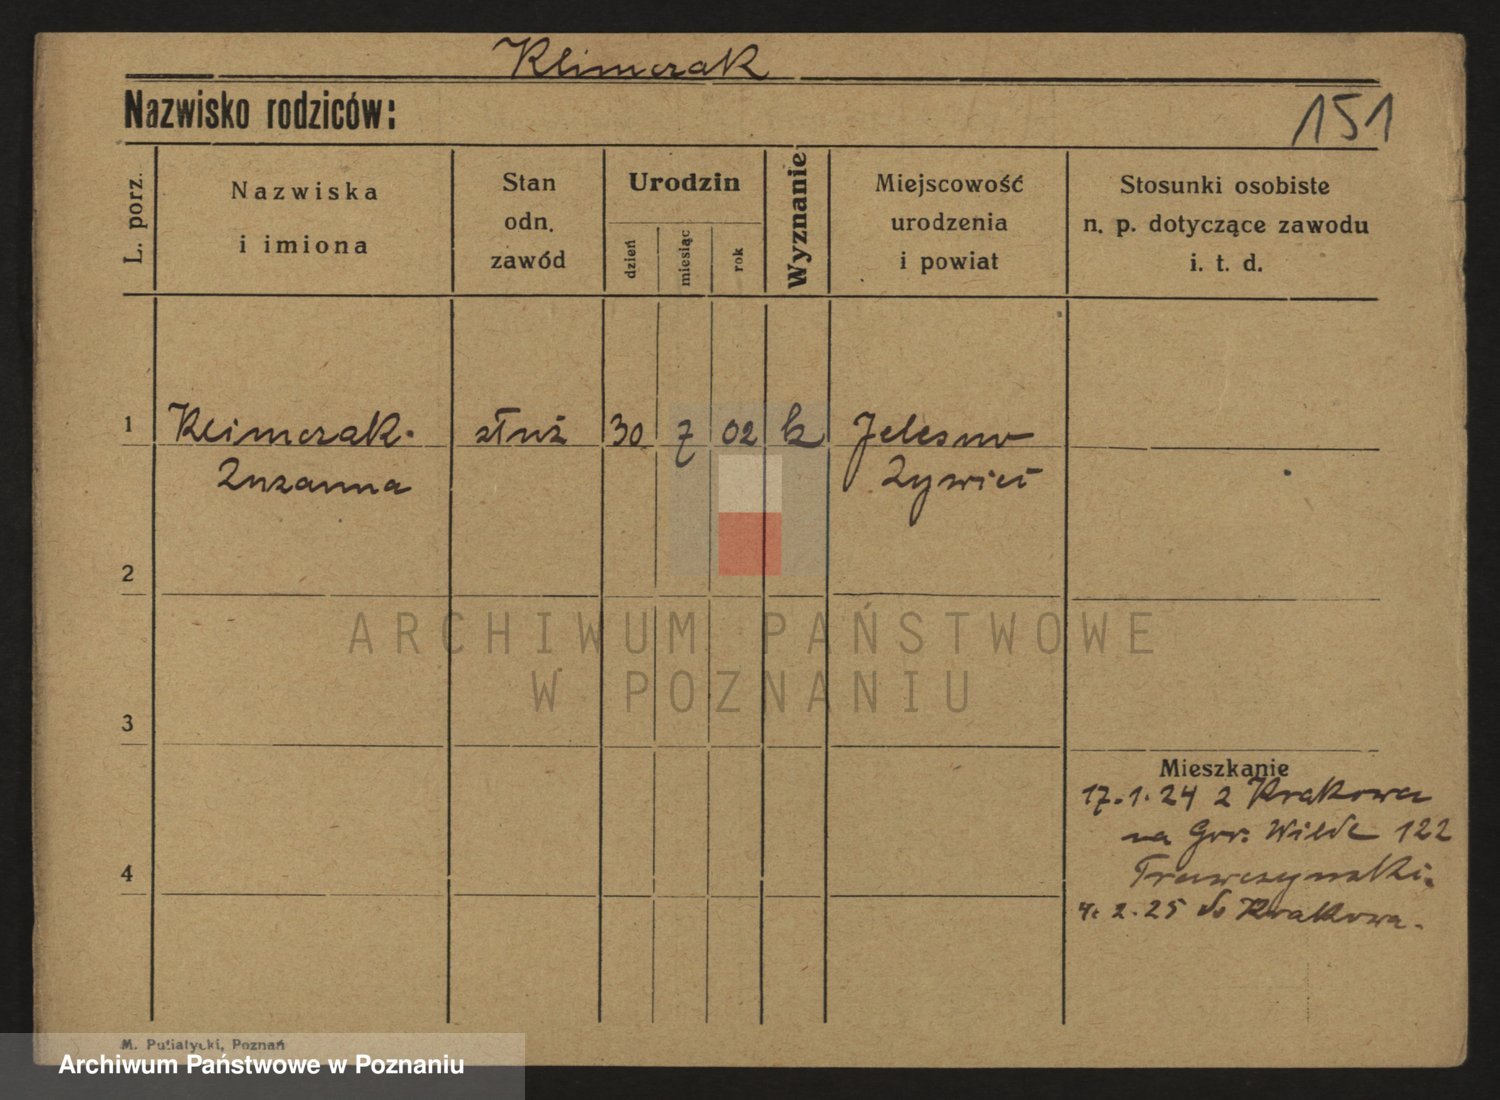 Klimczak
Nazwisko rodziców:
151
L. porz.
Nazwiska
i imiona
Stan
odn.
zawód
Urodzin
dzień
miesiąc
rok
Wyznanie
Miejscowość
urodzenia
i powiat
Stosunki osobiste
n. p. dotyczące zawodu
i. t. d.
1
Klimczak
służ
30
7
02
k
Jelesnia
Zuzanna
Żywiec
2
ARCHIWUM PAŃSTWOWE
W POZNANIU
3
Mieszkanie
17.1.24 z Krakowa
na Gór. Wilde 122
4
Trawczynski.
4.2.25 do Krakowa.
M. Putiatycki, Poznań
Archiwum Państwowe w Poznaniu